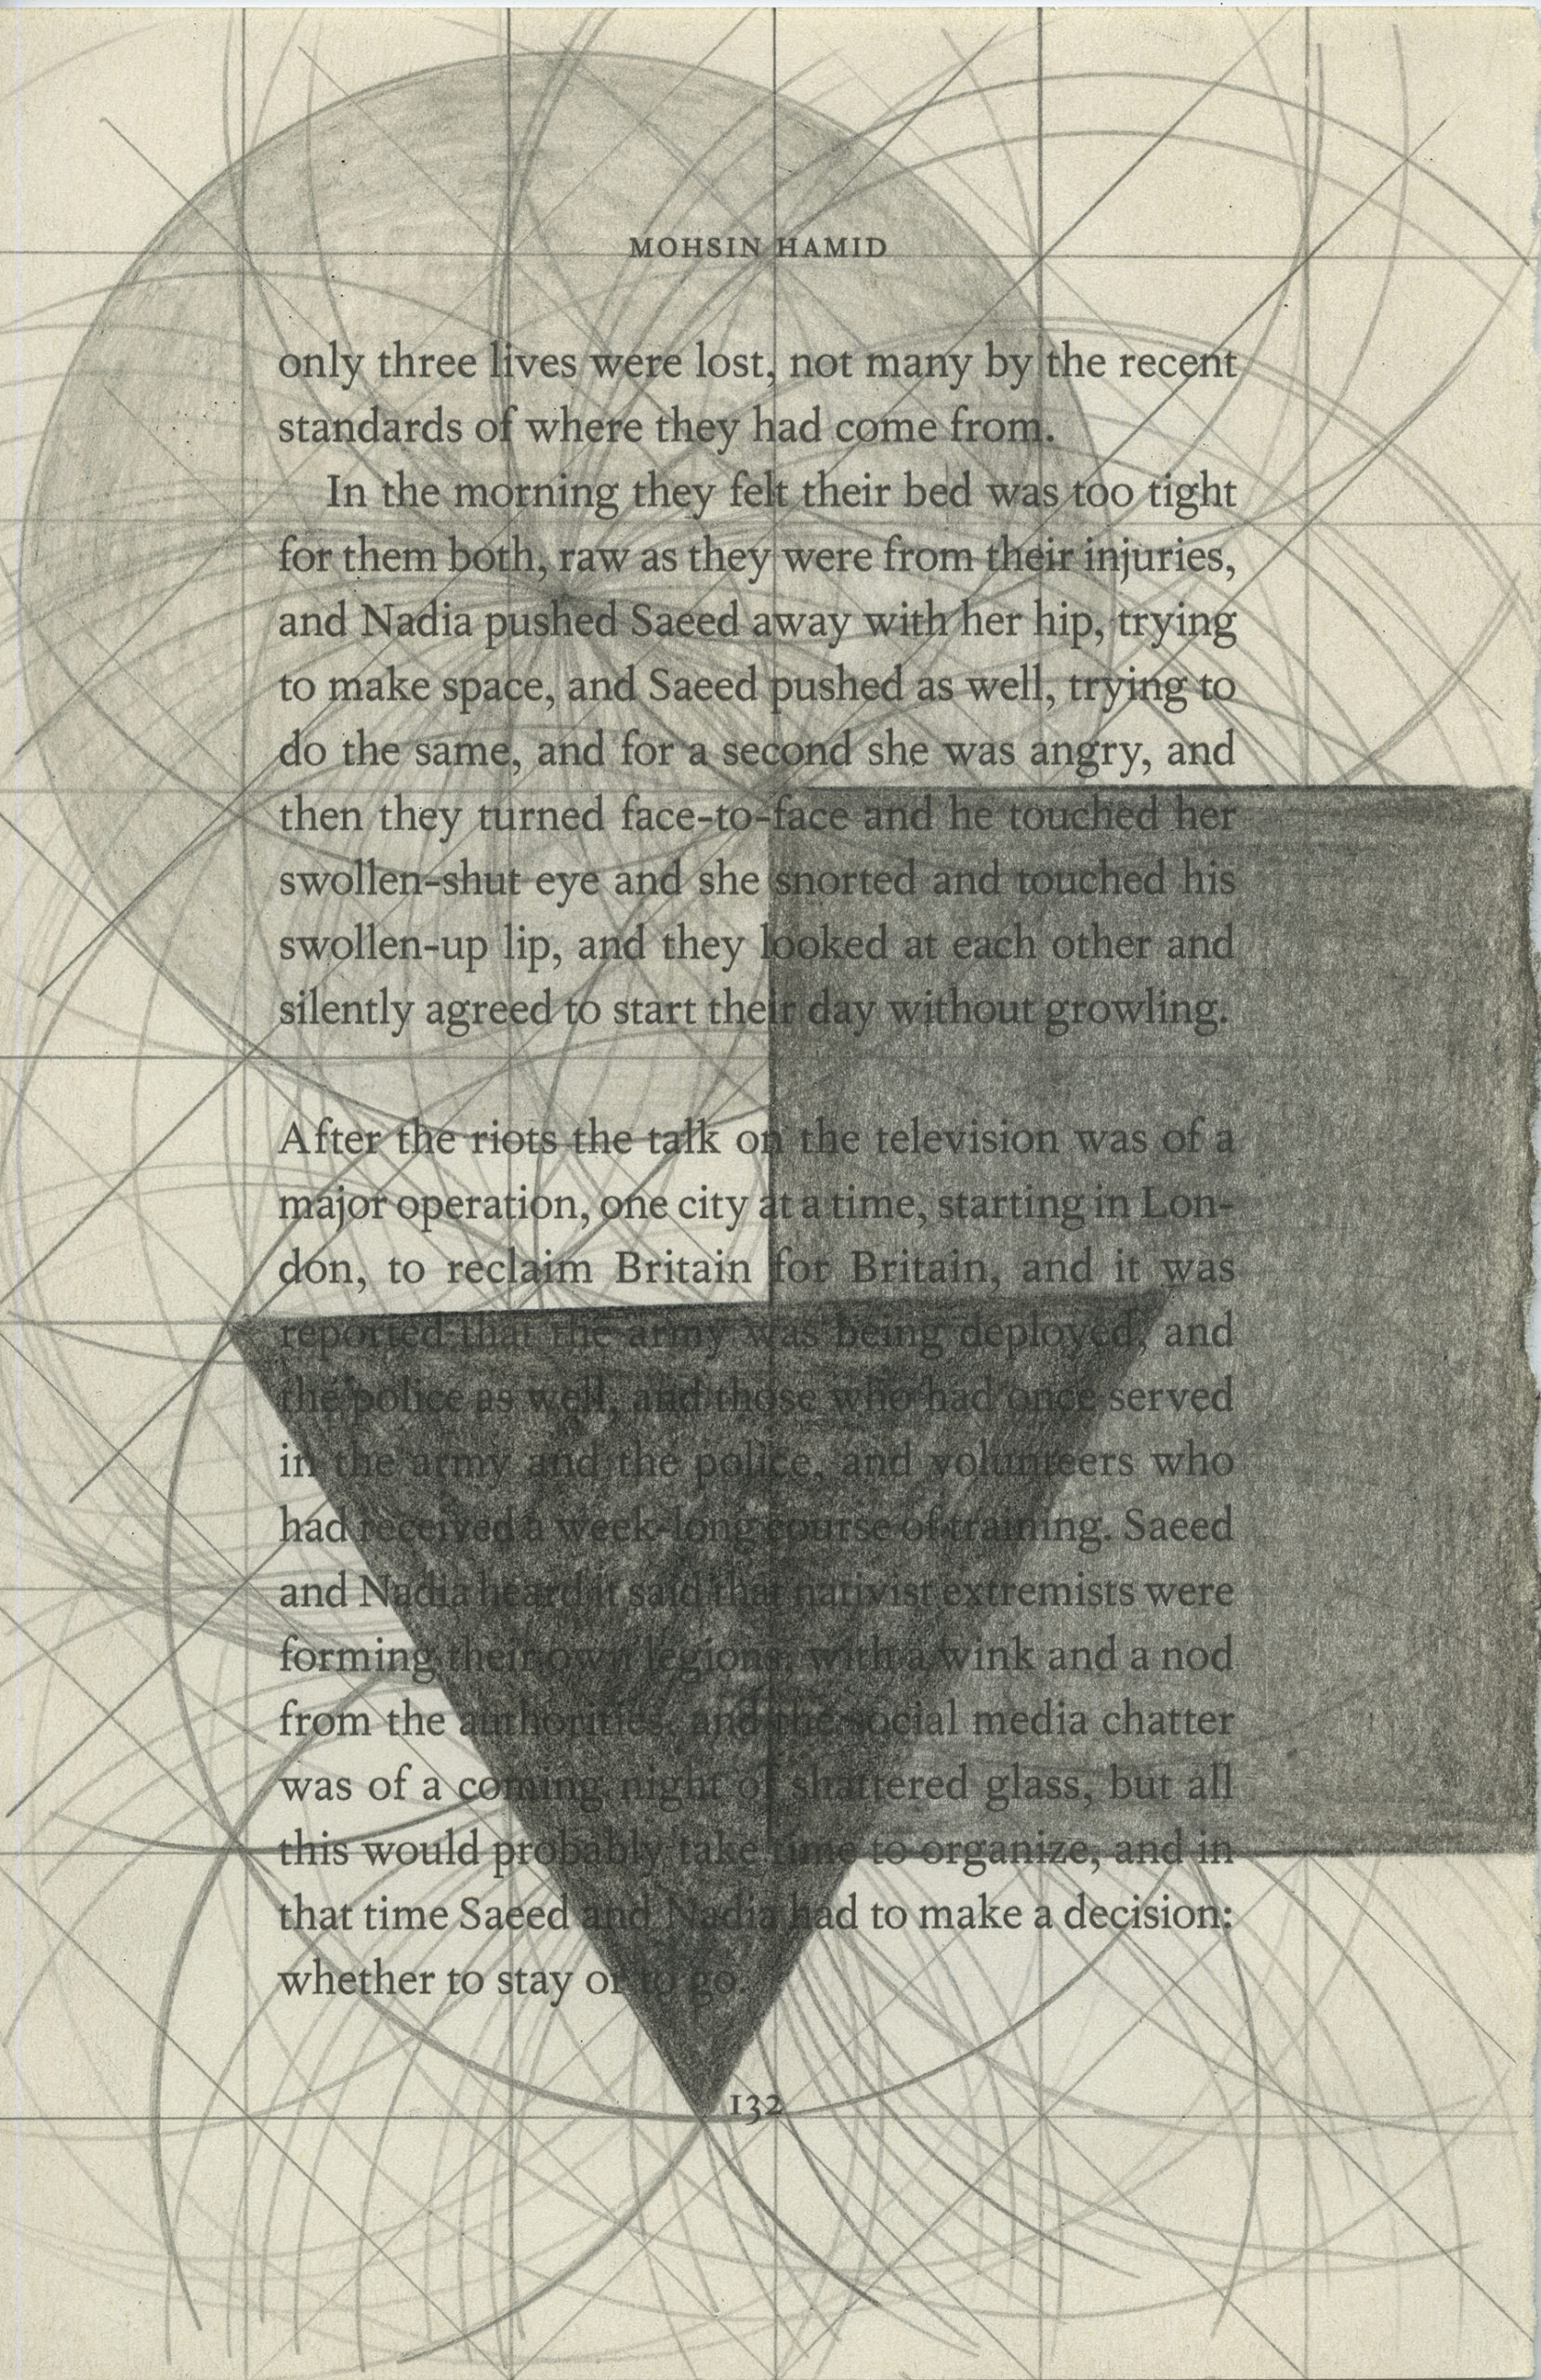 MOHSIN HAMID
only three lives were lost, not many by the recent
standards of where they had come from.
In the morning they felt their bed was too tight
for them both, raw as they were from their injuries,
and Nadia pushed Saeed away with her hip, trying
to make space, and Saeed pushed as well, trying to
do the same, and for a second she was angry, and
then they turned face-to-face and he touched her
swollen-shut eye and she snorted and touched his
swollen-up lip, and they looked at each other and
silently agreed to start their day without growling.
After the riots the talk on the television was of a
major operation, one city at a time, starting in Lon-
don, to reclaim Britain for Britain, and it was
reported that the army was being deployed, and
the police as well, and those who had once served
in the army and the police, and volunteers who
had received a week-long course of training. Saeed
and Nadia heard it said that nativist extremists were
forming their own legions, with a wink and a nod
from the authorities, and the social media chatter
was of a coming night of shattered glass, but all
this would probably take time to organize, and in
that time Saeed and Nadia had to make a decision:
whether to stay or to go.
132